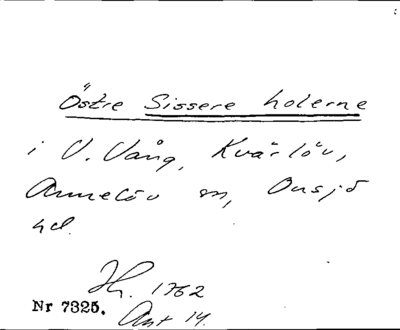 Östre Sissere holerne
i V. Vång, Kvärlöv,
Annelöv sn, Onsjö
hd.
Hh. 1762
Nr 7325. Akt 14.